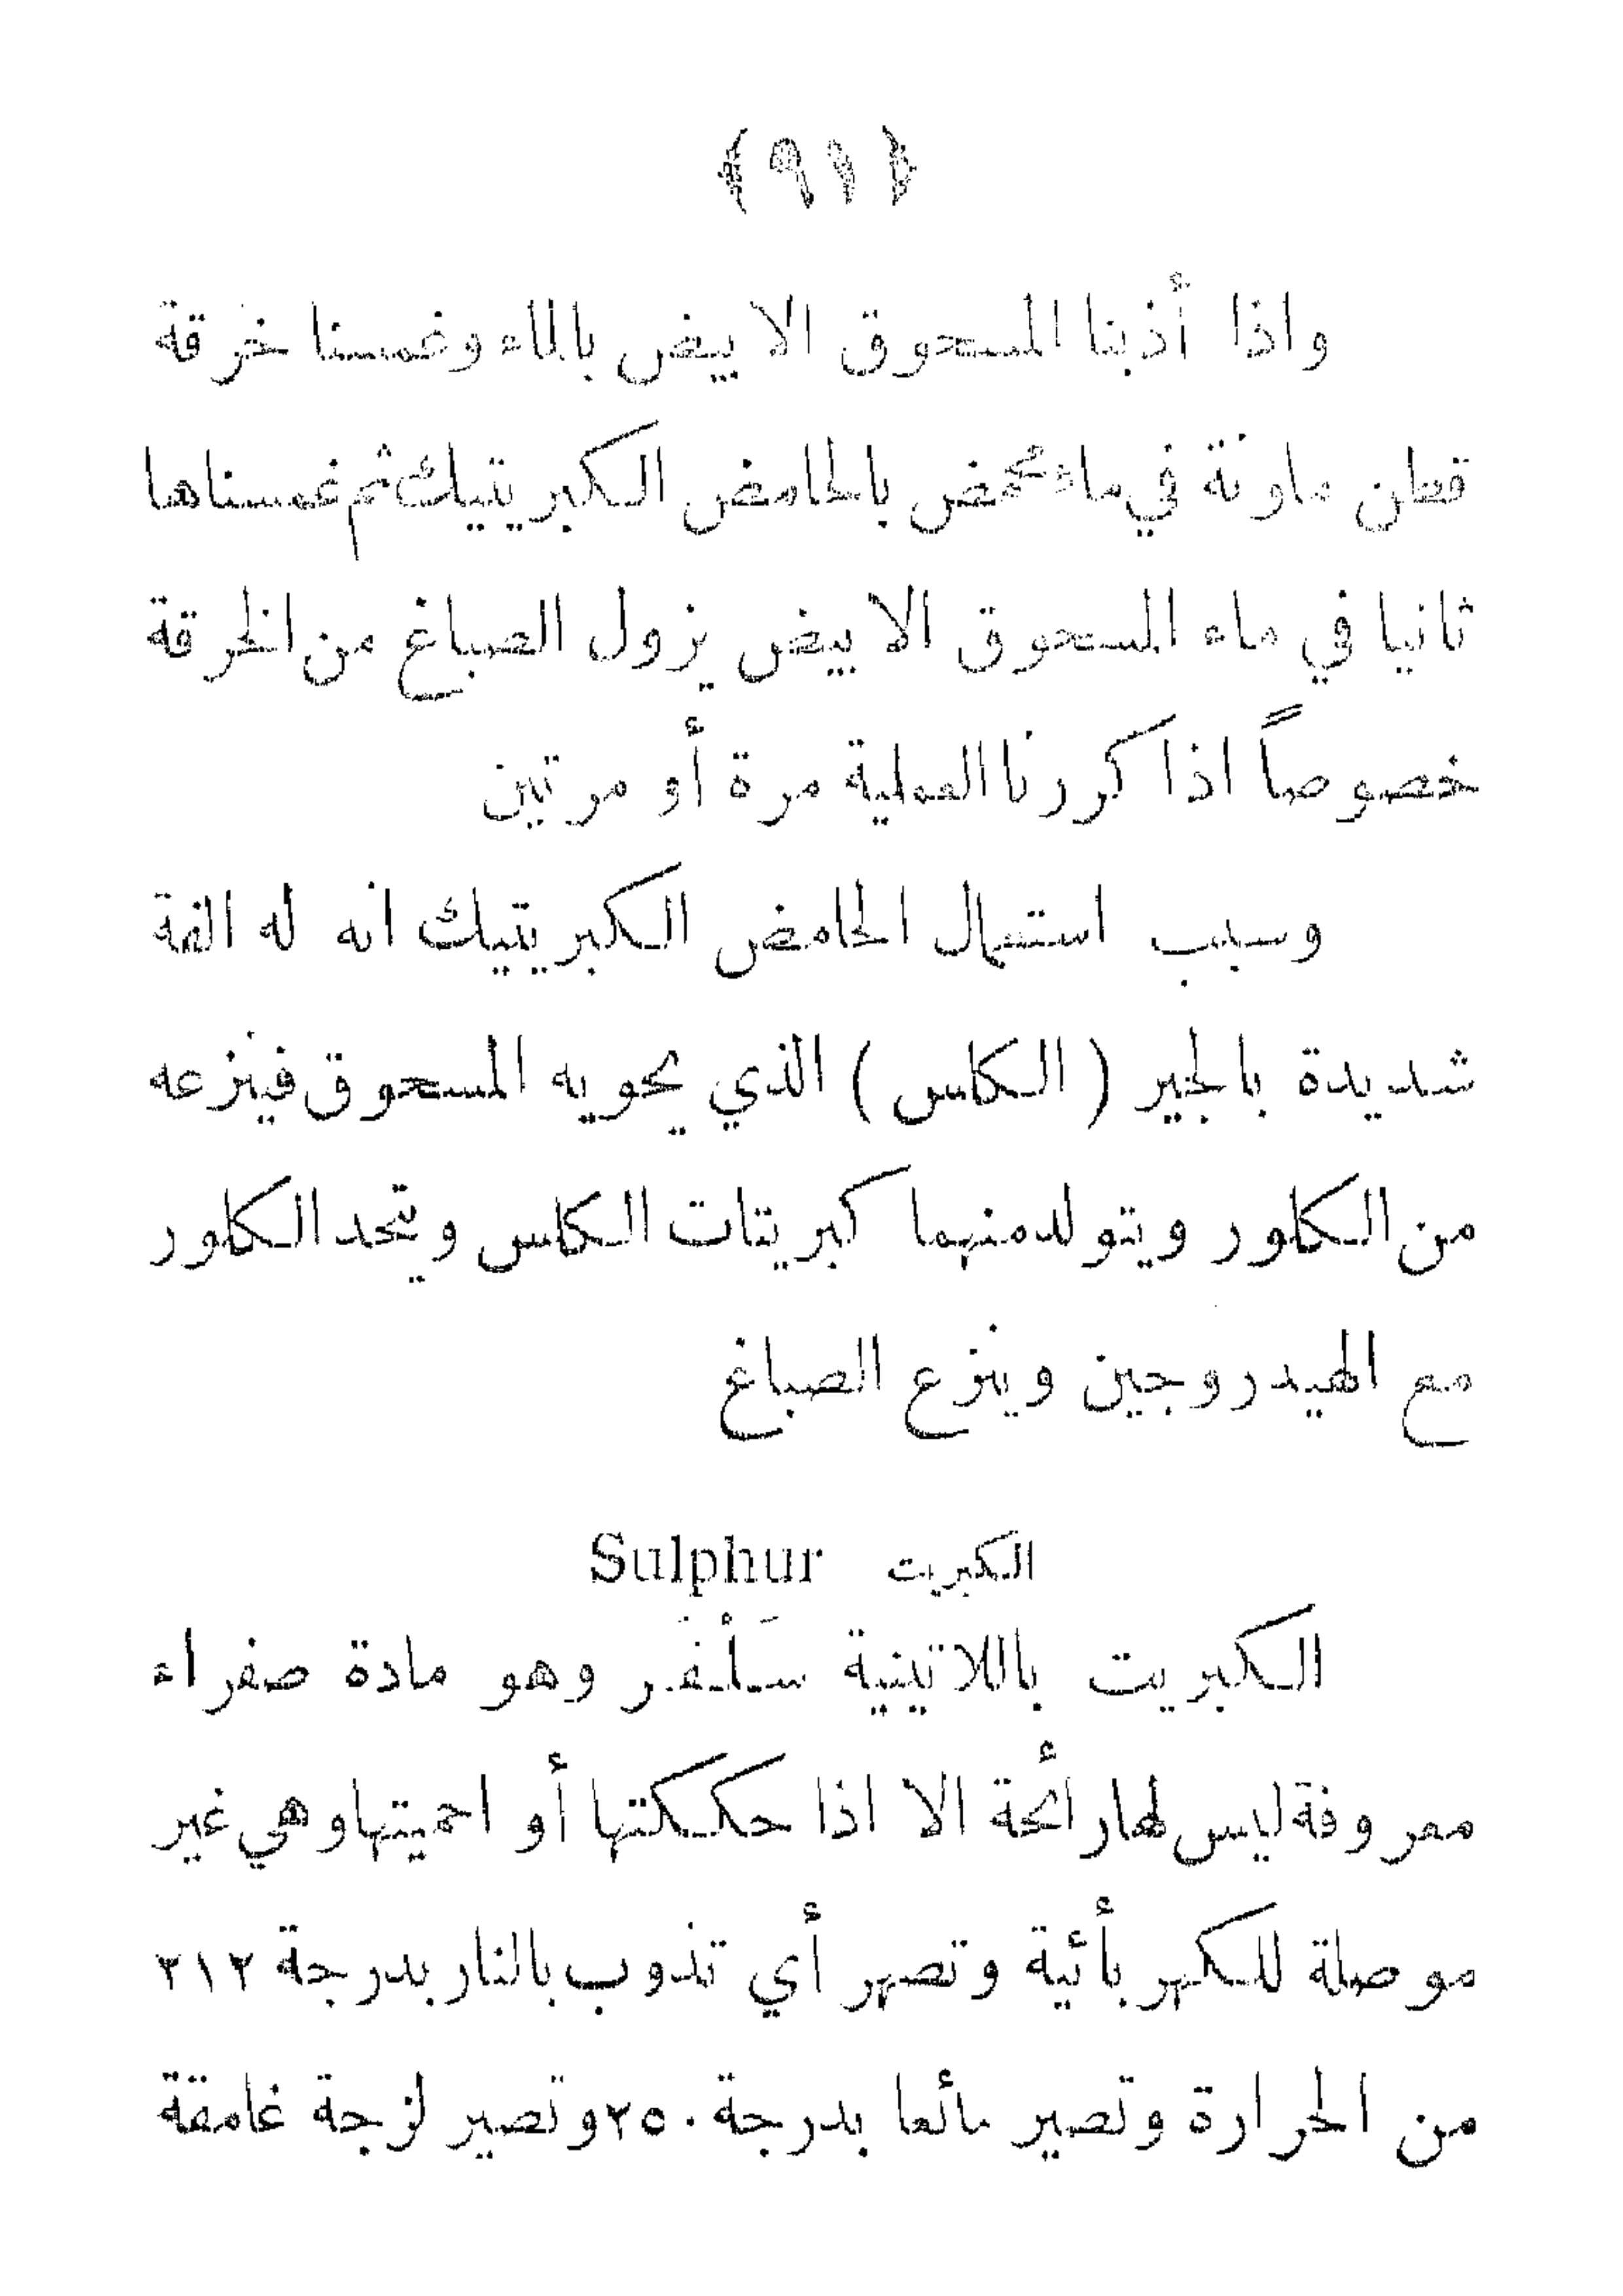 ﴿ ٩١ ﴾
واذا أذبنا المسحوق الابيض بالماء وغمسنا خرقة
قطن ملونة في ماء محمض بالحامض الكبريتيك ثم غمسناها
ثانيا في ماء المسحوق الابيض يزول الصباغ من الخرقة
خصوصاً اذا كررنا العملية مرة أو مرتين
وسبب استعمال الحامض الكبريتيك انه له الفة
شديدة بالجير ( الكلس ) الذي يحويه المسحوق فينزعه
من الكلور ويتولد منهما كبريتات الكلس ويتحد الكلور
مع الهيدروجين وينزع الصباغ
الكبريت Sulphur
الكبريت باللاتينية سَلْفَر وهو مادة صفراء
معروفة ليس لها رأئحة الا اذا حككتها أو احميتها وهي غير
موصلة للكهربأئية وتصهر أي تذوب بالنار بدرجة ٢١٢
من الحرارة وتصير مأئعا بدرجة ٢٥٠ وتصير لزجة غامقة